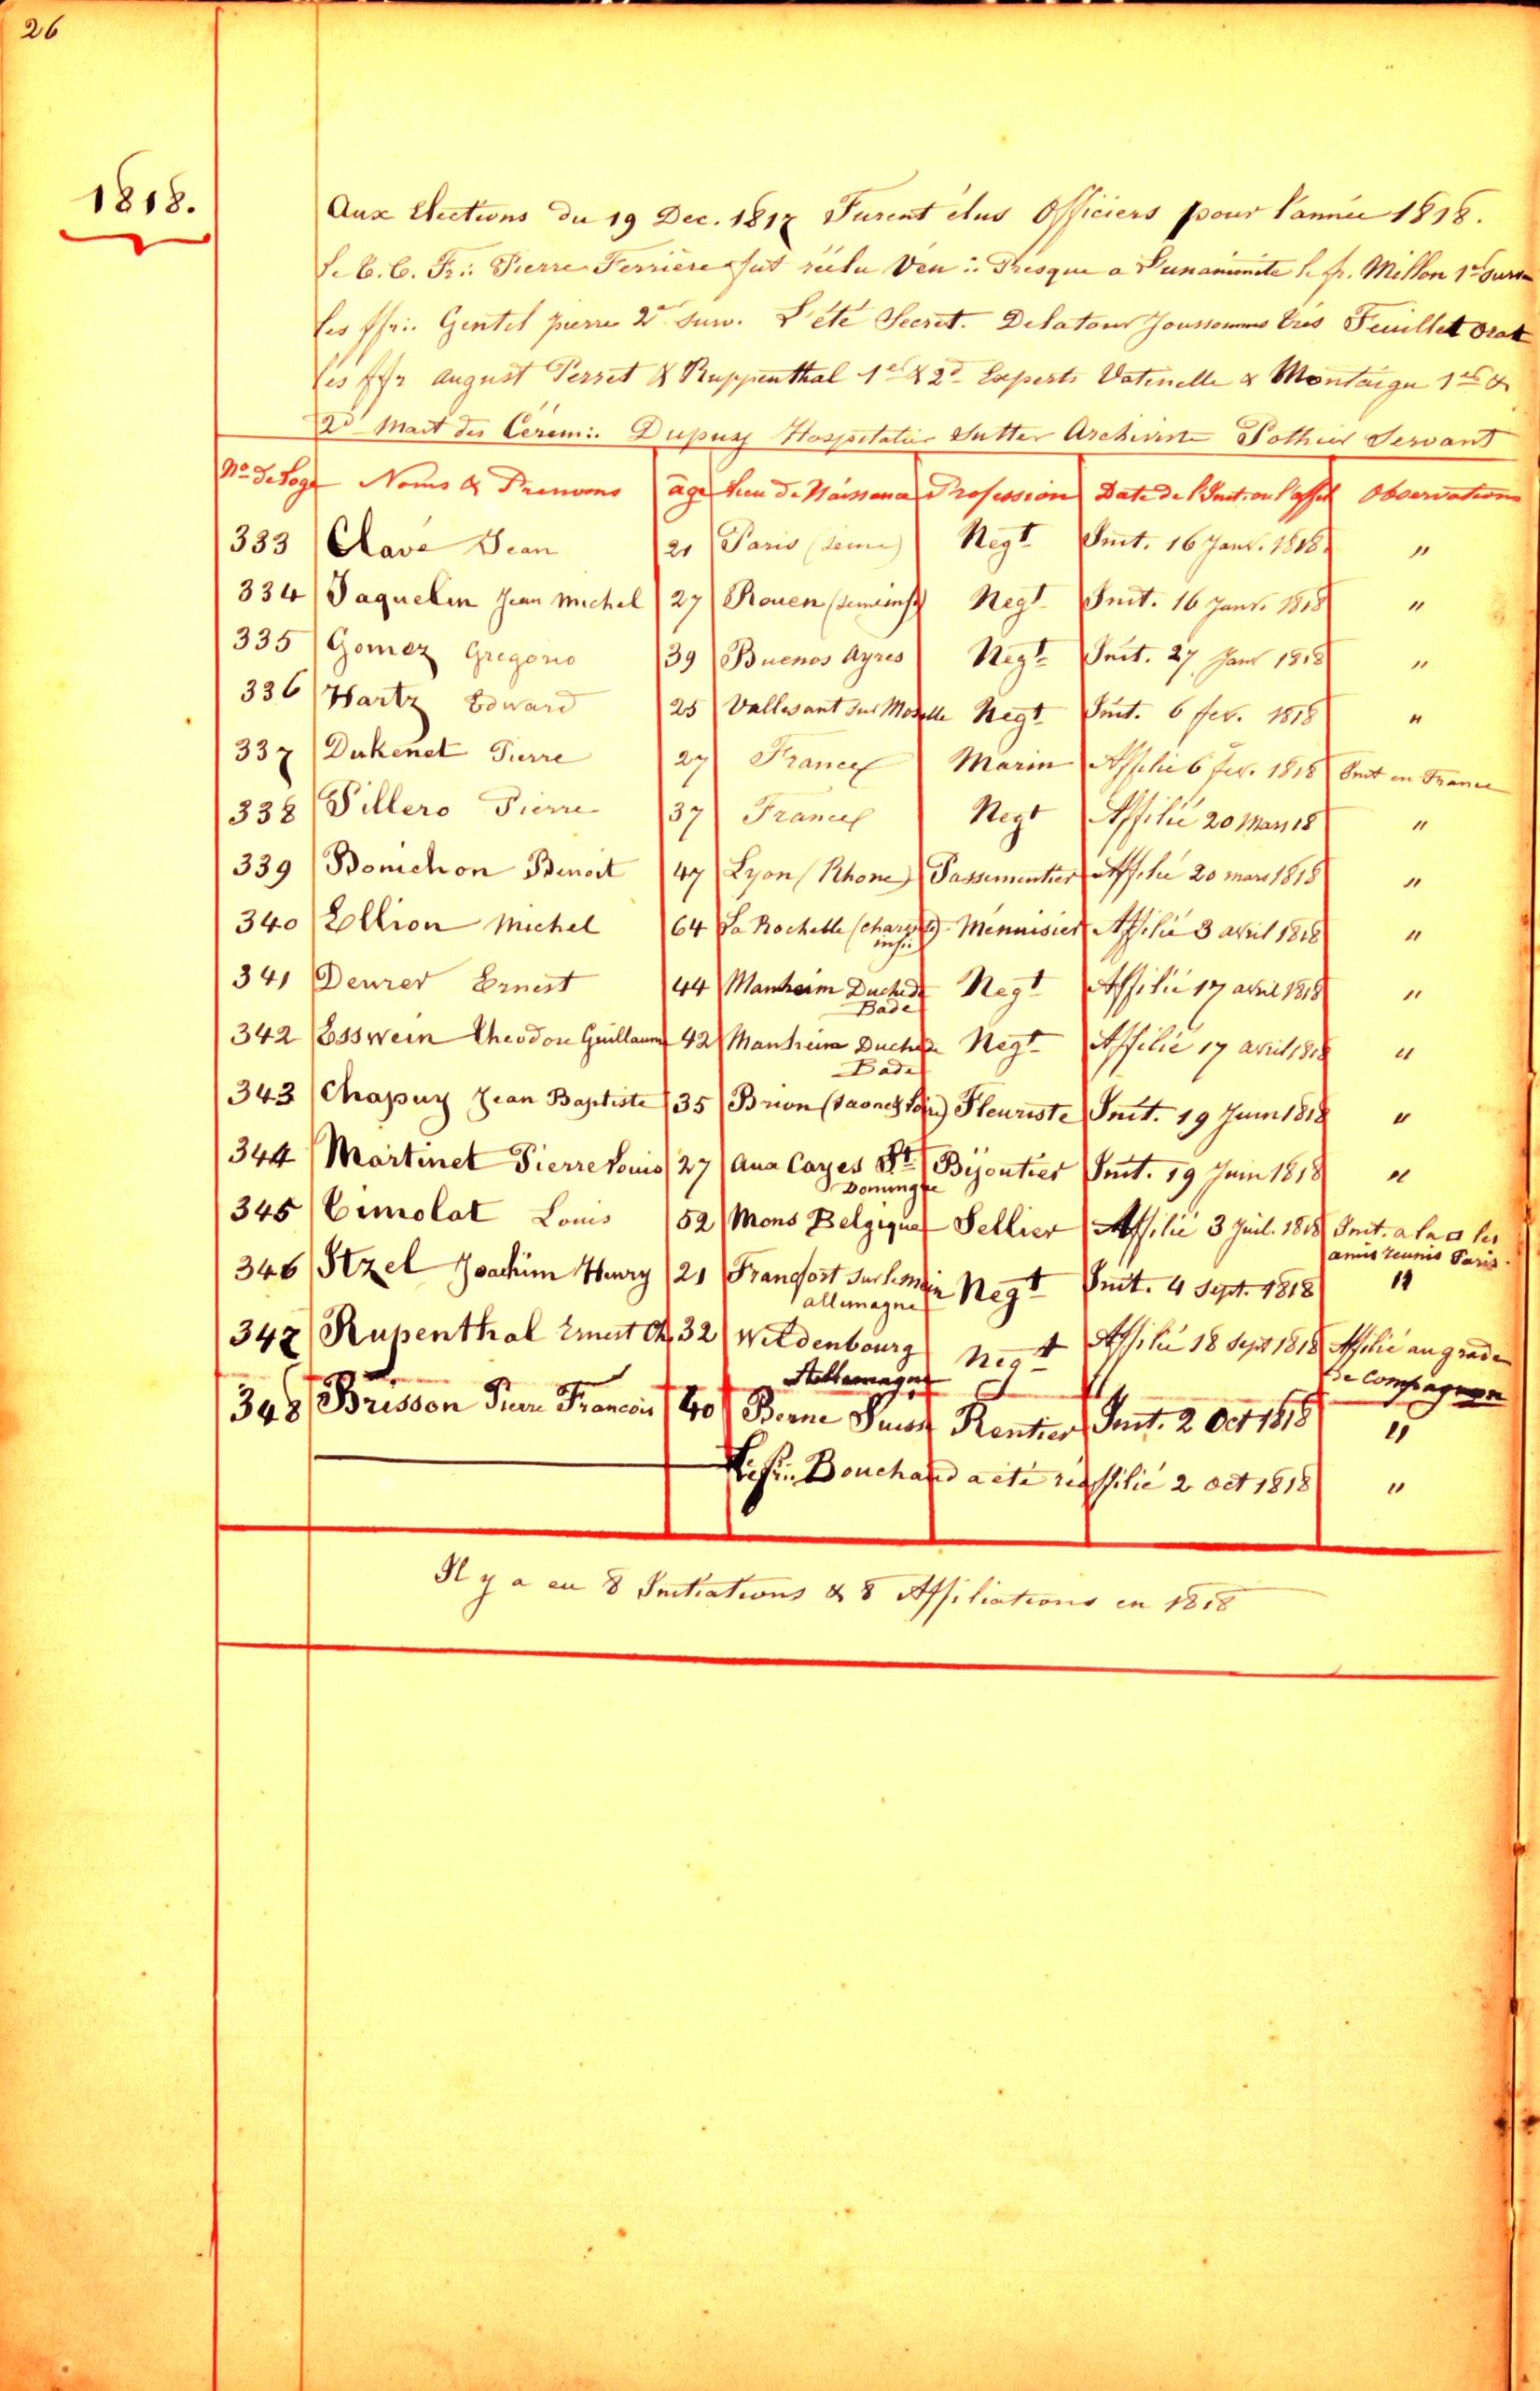 26
1818.
Aux Elections du 19 Dec. 1817 Furent élus Officiers pour l'année 1818.
Le C. C. Fr∴ Pierre Ferrière fut réélu Ven∴ Presque a l'unanimité le fr. Millon 1er Surv
les ffr∴ Gentil pierre 2d Surv. L'été Secret. Delatour Joussomme trés Feuillet Orat
les ffr August Perret & Ruppenthal 1er & 2d Experts Vatinelle & Montaigu 1er &
2d Mait des Cérém∴ Dupuy Hospitalier Sutter Archiviste Pothier Servant
No de Loge Noms & Prenoms age Lieu de Naissance Profession Date de l'Init. ou l'affil Observations
333 Clavé Jean 21 Paris (Seine) Negt Init. 16 Janv. 1818 "
334 Jaquelin Jean Michel 27 Rouen Negt Init. 16 Janv. 1818 "
335 Gomez Gregorio 39 Buenos Ayres Negt Init. 27 Janv 1818 "
336 Hartz Edward 25 Vallesant sur Moselle Negt Init. 6 fev. 1818 "
337 Dukenet Pierre 27 France Marin Affilié 6 fev. 1818 Init en France
338 Pillero Pierre 37 France Negt Affilié 20 Mars 18 "
339 Bonichon Benoit 47 Lyon (Rhone) Passementier Affilié 20 mars 1818 "
340 Ellion Michel 64 La Rochelle (charente Mennisier Affilié 3 avril 1818 "
infr)
341 Deurer Ernest 44 Manheim Duché de Negt Affilié 17 avril 1818 "
Bade
342 Esswein Theodore Guillaume 42 Manheim Duché de Negt Affilié 17 avril 1818 "
Bade
343 Chapuy Jean Baptiste 35 Brion (Saone & Loire) Fleuriste Init. 19 Juin 1818 "
344 Martinet Pierre Louis 27 Aux Cayes St Bijoutier Init. 19 Juin 1818 "
Domingue
345 Cimolat Louis 52 Mons Belgique Sellier Affilié 3 Juil. 1818 Init. a la □ les
amis reunis Paris.
346 Itzel Joachim Henry 21 Francfort sur le Mein Negt Init. 4 Sept. 1818 "
allemagne
347 Rupenthal Ernest Ch. 32 Wildenbourg Negt Affilié 18 Sept 1818 Affilié au grade
Allemagne de Compagnon
348 Brisson Pierre Francois 40 Berne Suisse Rentier Init. 2 Oct 1818 "
Le fr∴ Bouchaud a été réaffilié 2 oct 1818 "
Il y a eu 8 Initiations & 8 Affiliations en 1818